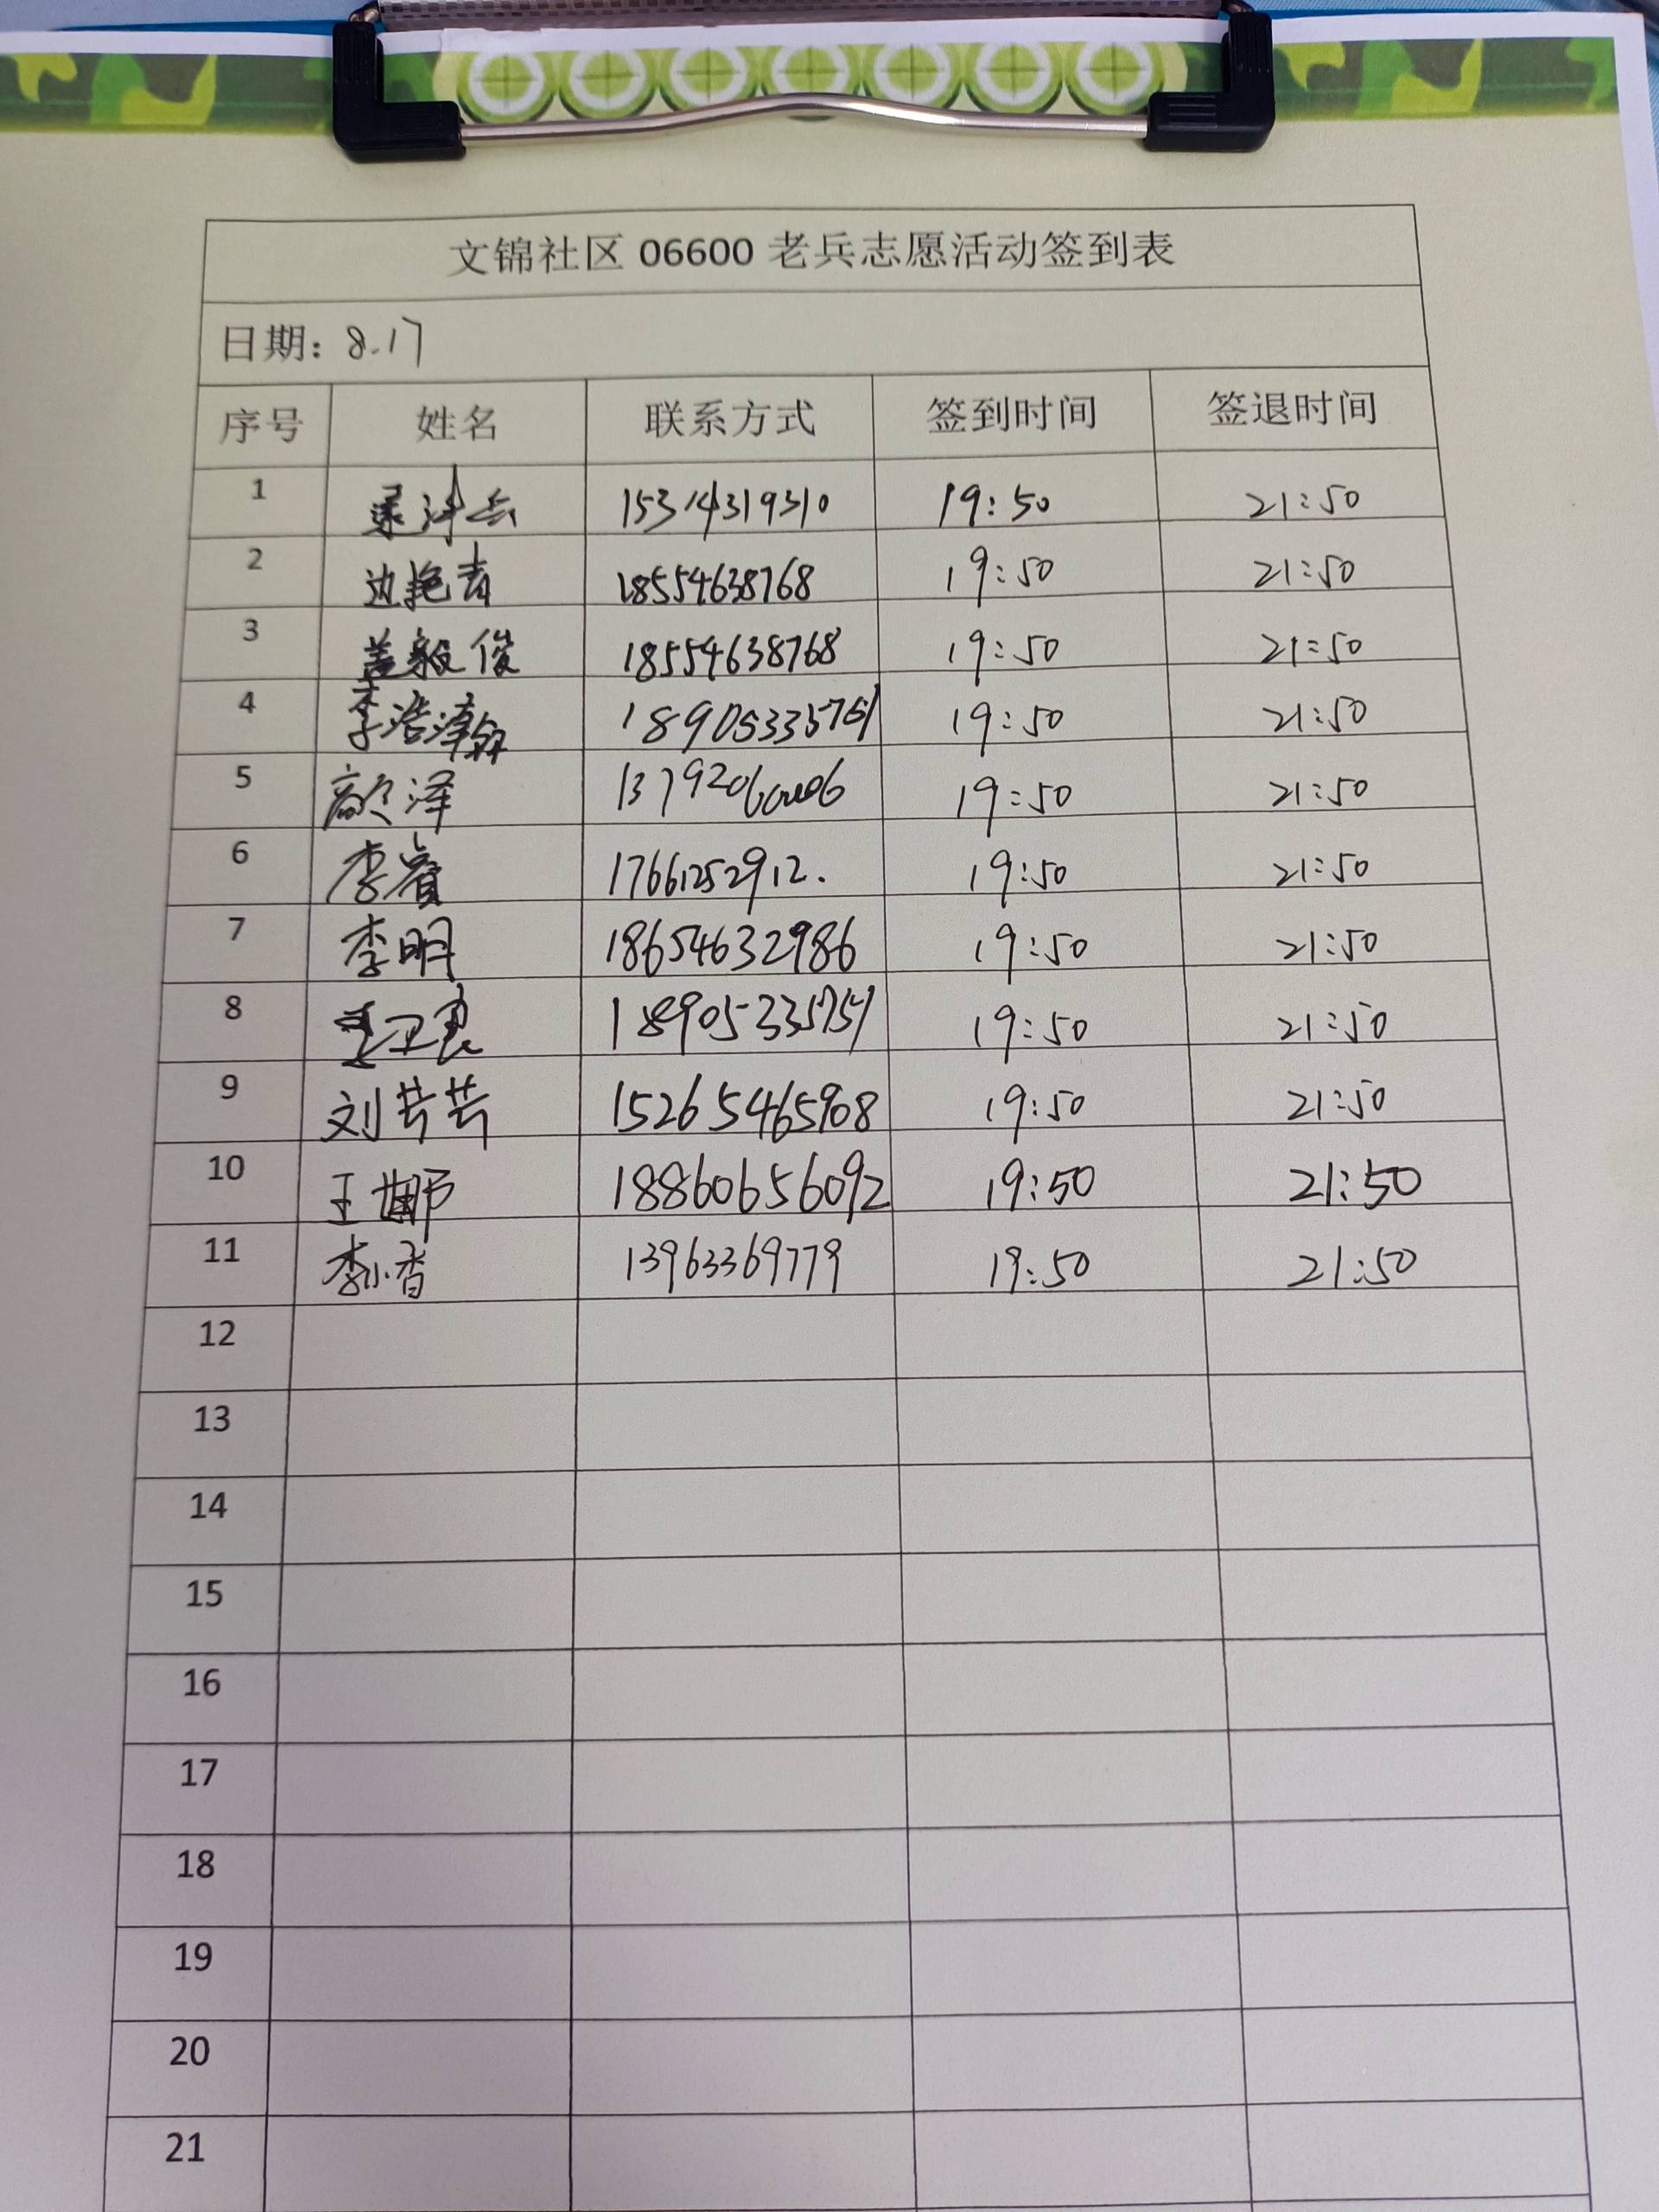 文锦社区 06600 老兵志愿活动签到表
日期: 8.17
序号 姓名 联系方式 签到时间 签退时间
1 15314319310 19:50 21:50
2 边艳青 18554638768 19:50 21:50
3 盖毅俊 18554638768 19:50 21:50
4 李浩泽 19:50 21:50
5 泽 19:50 21:50
6 李睿 17661252912. 19:50 21:50
7 李明 18654632986 19:50 21:50
8 18905335751 19:50 21:50
9 刘芸芸 15265465908 19:50 21:50
10 王娜 18860656092 19:50 21:50
11 李小香 13963369779 19:50 21:50
12
13
14
15
16
17
18
19
20
21